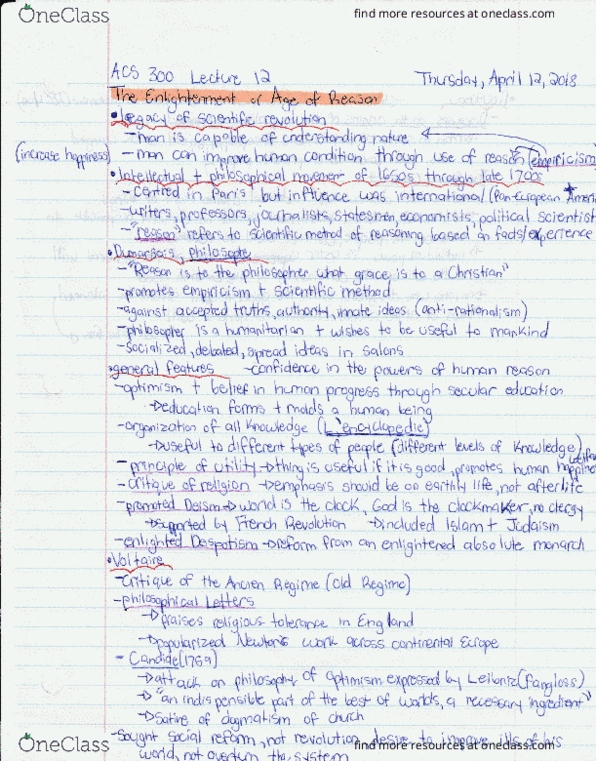 OneClass
find more resources at oneclass.com
ACS 300 Lecture 12
Thursday, April 12, 2018
The Enlightenment or Age of Reason
•Legacy of scientific revolution
-man is capable of understanding nature
(increase happiness) -man can improve human condition through use of reason (empiricism
•Intellectual + philosophical movement of 1650s through late 1700s
-centred in Paris but influence was international (Pan-European + Ameri
-writers, professors, journalists, statesmen, economists, political scientist
-"reason" refers to scientific method of reasoning based on facts/experience
•Dumarsais, philosophe
-"Reason is to the philosopher what grace is to a Christian"
-promotes empiricism + scientific method
-against accepted truths, authority, innate ideas (anti-rationalism)
-philosopher is a humanitarian + wishes to be useful to mankind
-socialized, debated, spread ideas in salons
•general features -confidence in the powers of human reason
-optimism + belief in human progress through secular education
→education forms + molds a human being
-organization of all knowledge (L'encyclopedie)
→useful to different types of people (different levels of knowledge)
-principle of utility →thing is useful if it is good, promotes human happiness
-critique of religion →emphasis should be on earthly life, not afterlife
-promoted Deism→world is the clock, God is the clockmaker, no clergy
→supported by French Revolution →included Islam + Judaism
-enlighted Despotism →reform from an enlightened absolute monarch
•Voltaire
-critique of the Ancien Regime (Old Regime)
-philosophical Letters
→praises religious tolerance in England
→popularized Newton's work across continental Europe
- Candide (1759)
→attack on philosophy of optimism expressed by Leibniz (Pangloss)
→"an indispensible part of the best of worlds, a necessary ingredient"
→satire of dogmatism of church
-sought social reform, not revolution, desire to improve ills of his
world, not overturn the system
OneClass
find more resources at oneclass.com